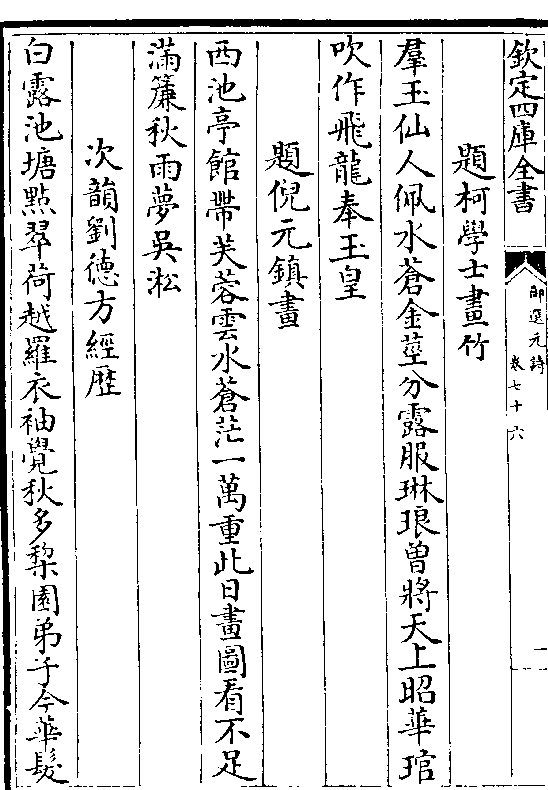 欽定四庫全書
御選元詩
卷七十六
一
題柯學士畫竹
羣玉仙人佩水蒼金莖分露服琳琅曽將天上昭華琯
吹作飛龍奉玉皇
題倪元鎮畫
西池亭館帶芙蓉雲水蒼茫一萬重此日畫圖看不足
滿簾秋雨夢吳淞
次韻劉德方經歴
白露池塘點翠荷越羅衣袖覺秋多棃園弟子今華髮